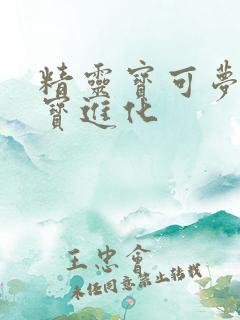 精靈寶可夢
寶進化
王忠會
未经同意禁止转载